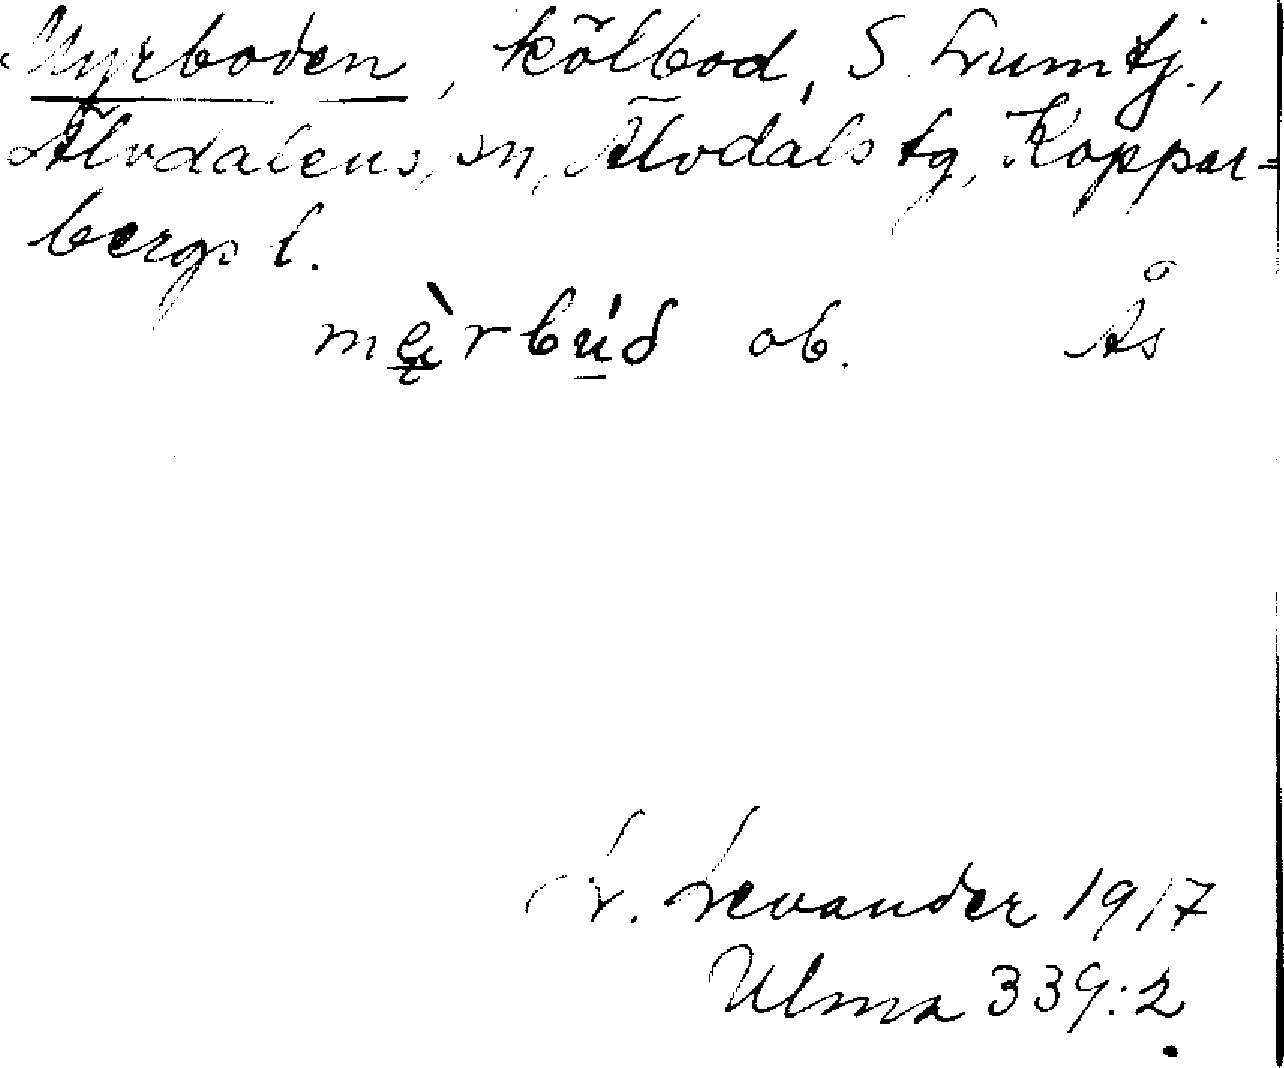 Myrboden, kölbod, S. Lumtj.,
Älvdalens, sn, Älvdals tg, Koppar-
bergs l.
mę̀rbúd ob. Ås
L. Levander 1917
Ulma 339:2